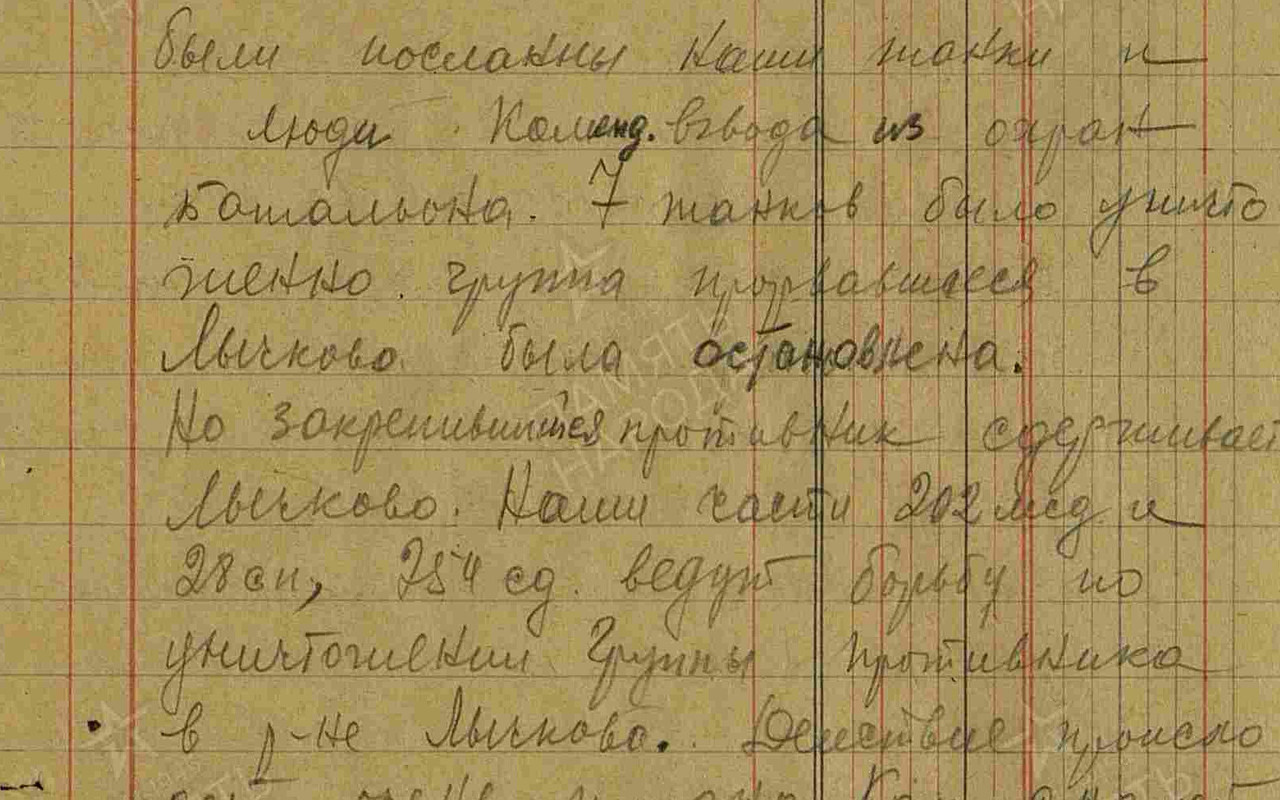 были посланны наши танки и
люди Коменд. взвода из охран
батальона. 7 танков было уничто
женно. группа прорвавшаеся в
Лычково была остановлена.
Но закрепившийся противник сдерживает
Лычково. Наши части 202 мсд и
28 сп, 254 сд. ведут борьбу по
уничтожении группы противника
в р-не Лычково. Действие происхо
ПАМЯТЬ
НАРОДА